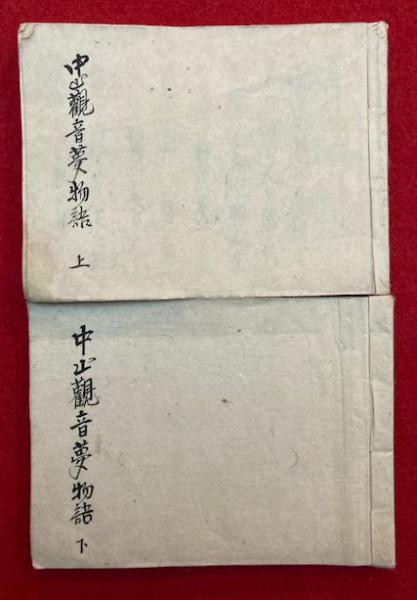 中山觀音夢物語 上
中山觀音夢物語 下